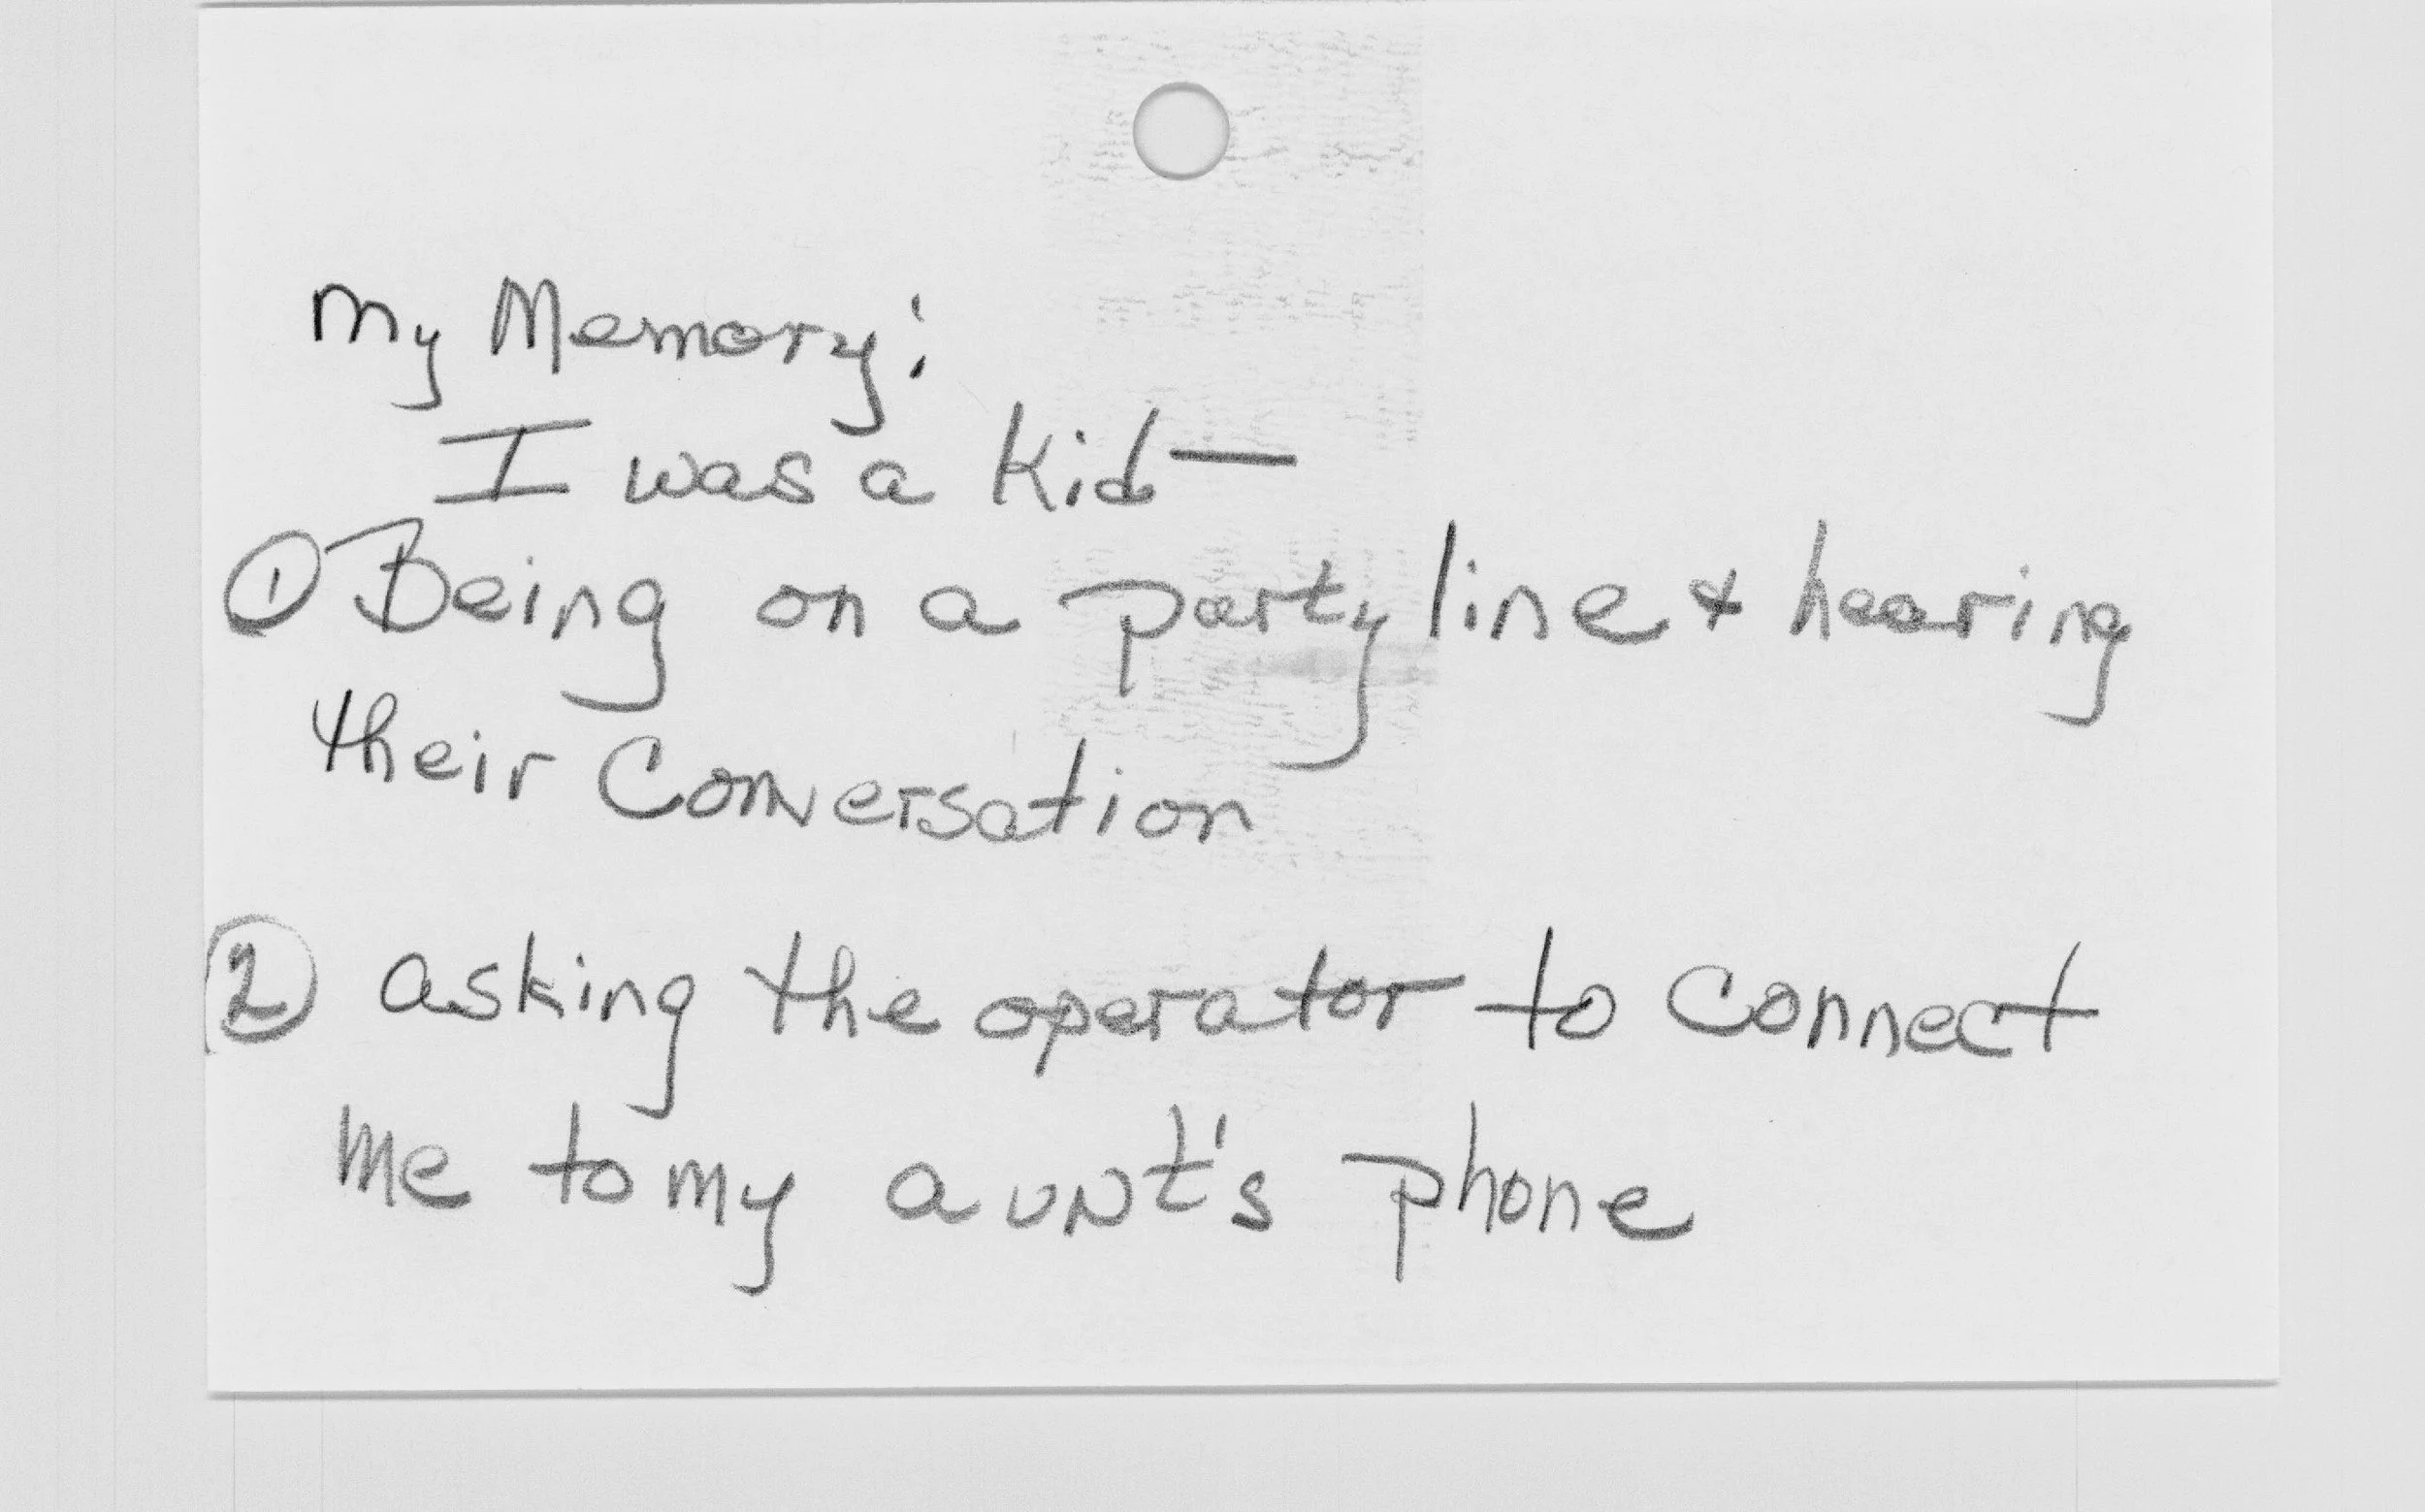 My Memory:
I was a Kid —
① Being on a party line & hearing
their Conversation
② asking the operator to connect
me to my aunt's phone